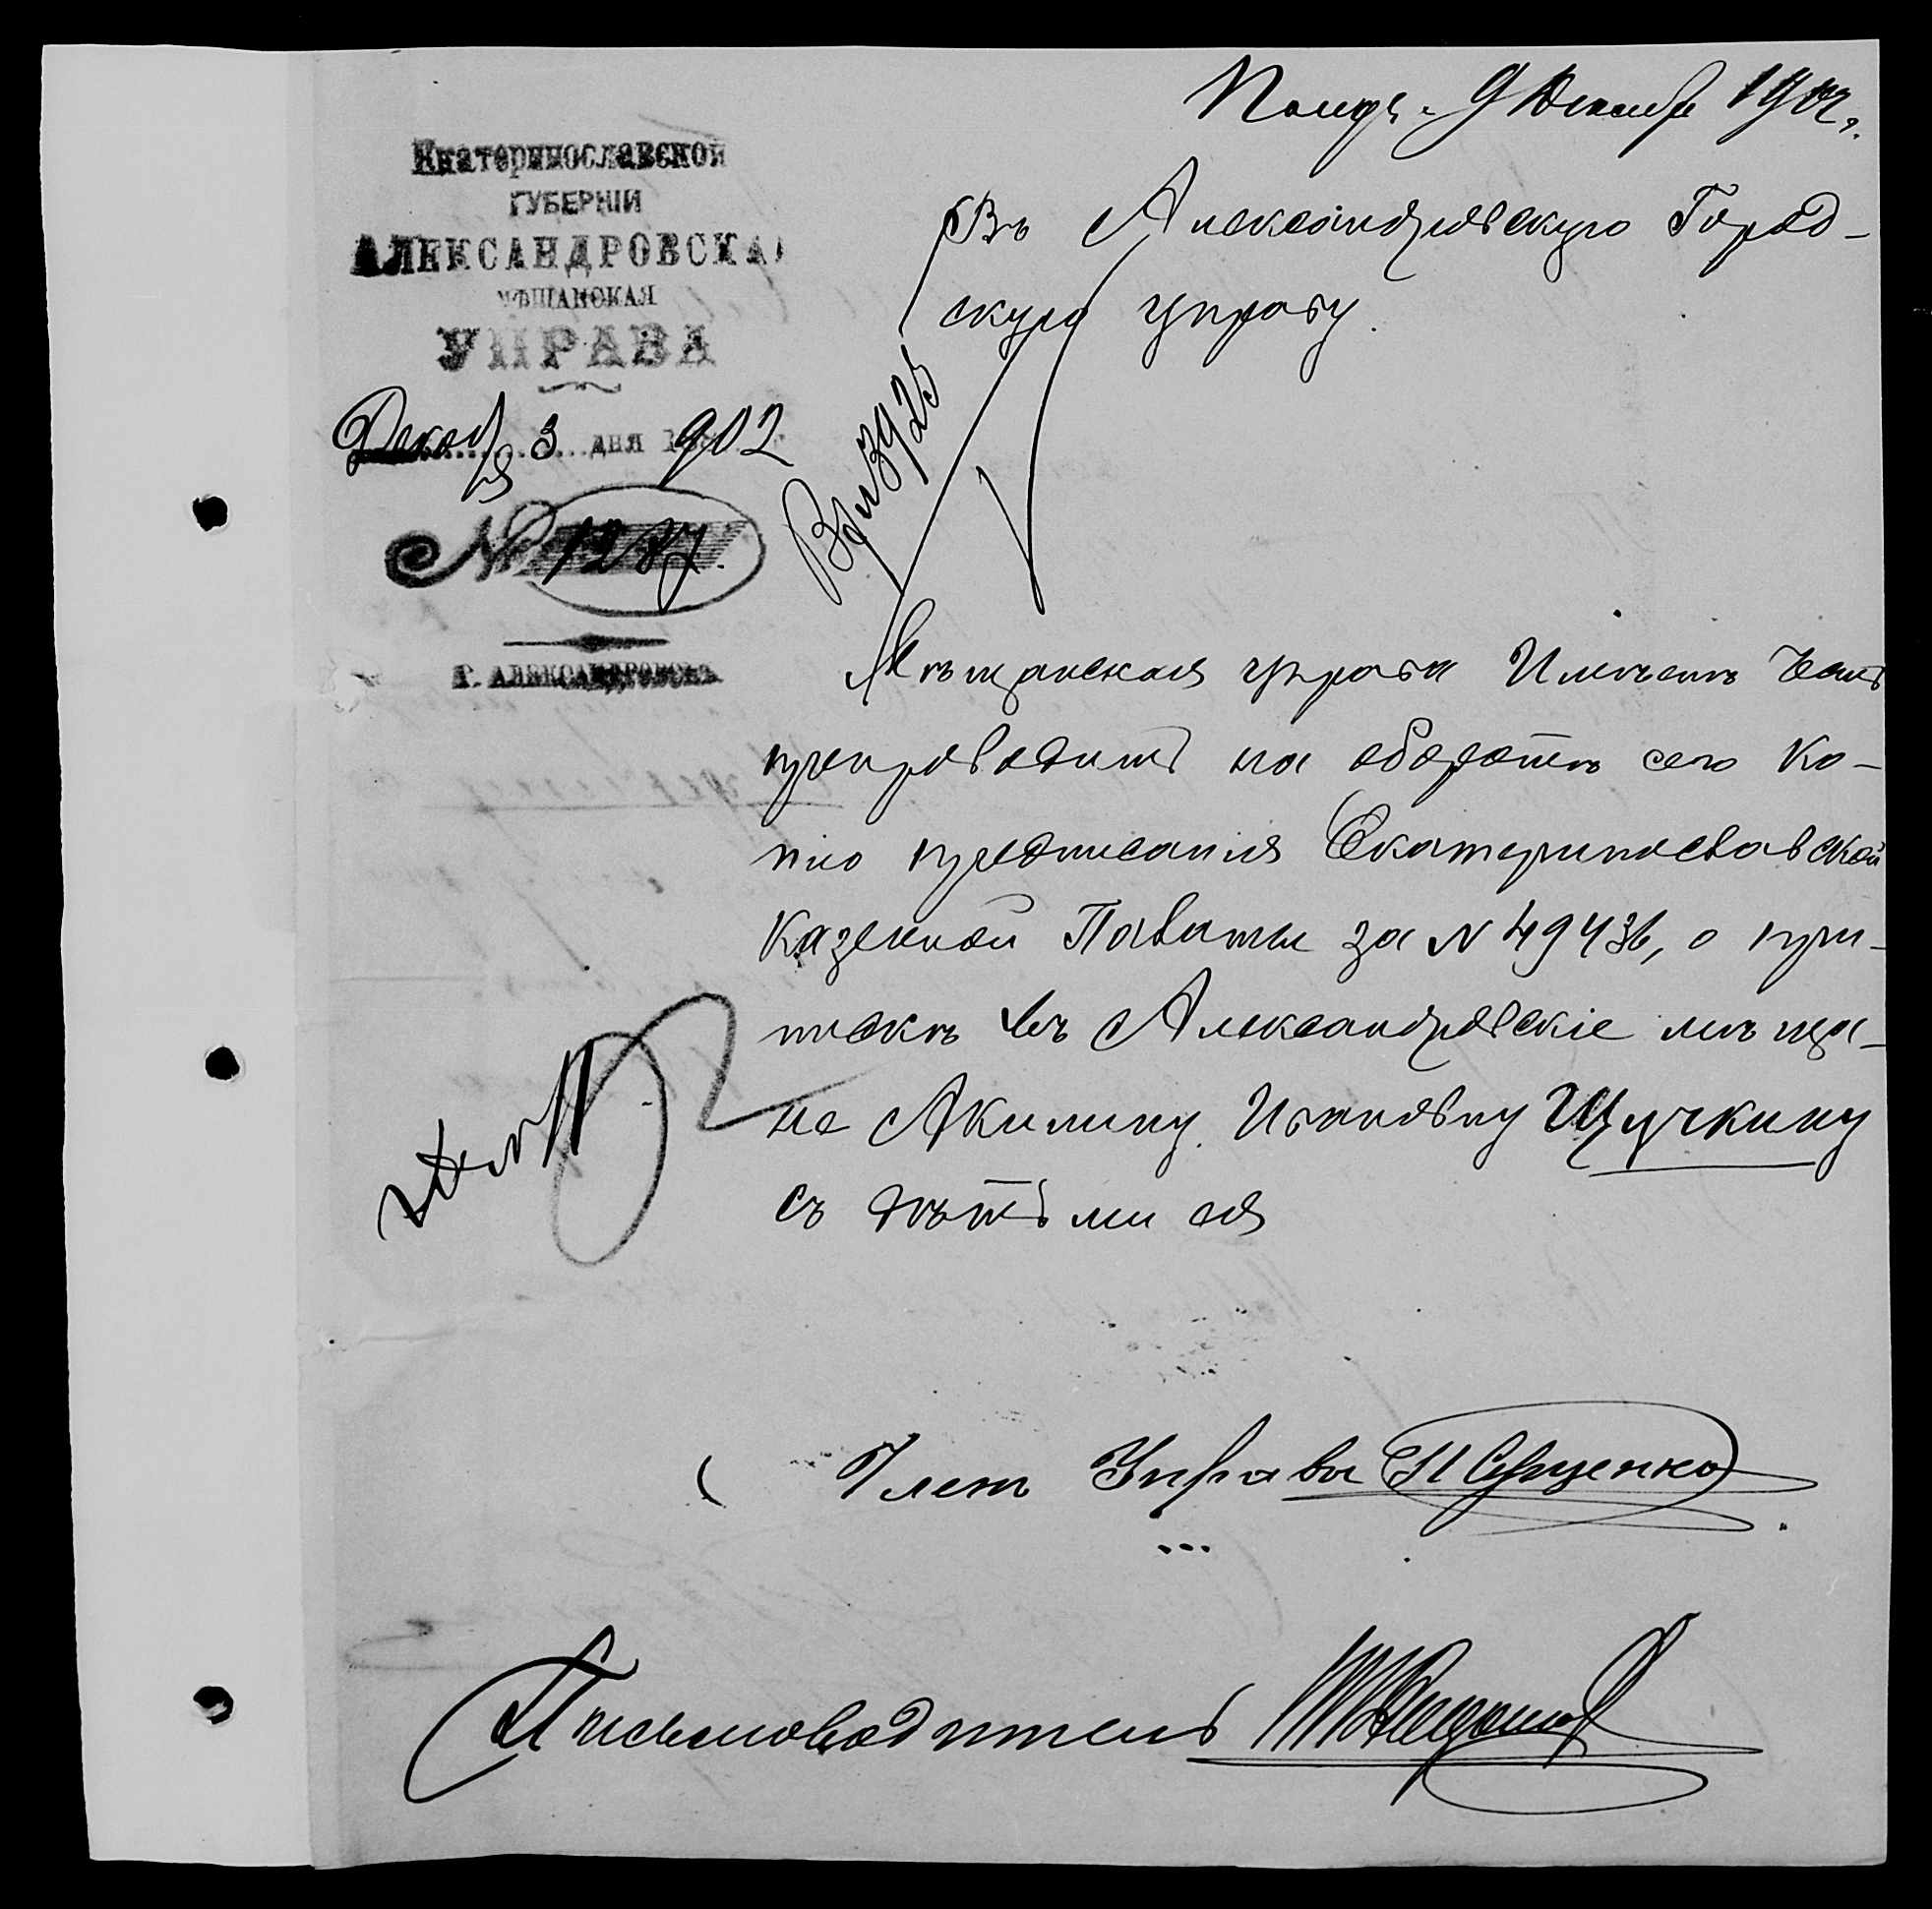 9 Декабря 1902 г.
Екатеринославской
ГУБЕРНІИ
АЛЕКСАНДРОВСКАЯ
МѢЩАНСКАЯ
УПРАВА
Декабря 3 дня 1902
№ 1287.
Г. АЛЕКСАНДРОВСКЪ
Въ Александровскую Город-
скую управу.
3925
Мѣщанская управа Имѣетъ честь
препроводить на оборотѣ сего ко-
пію предписанія Екатеринославской
Казенной Палаты за N 49436, о при-
пискѣ въ Александровскіе мѣща-
не Акилину Ивановну Щучкину
съ дѣтьми ея
Членъ Управы
Письмоводитель